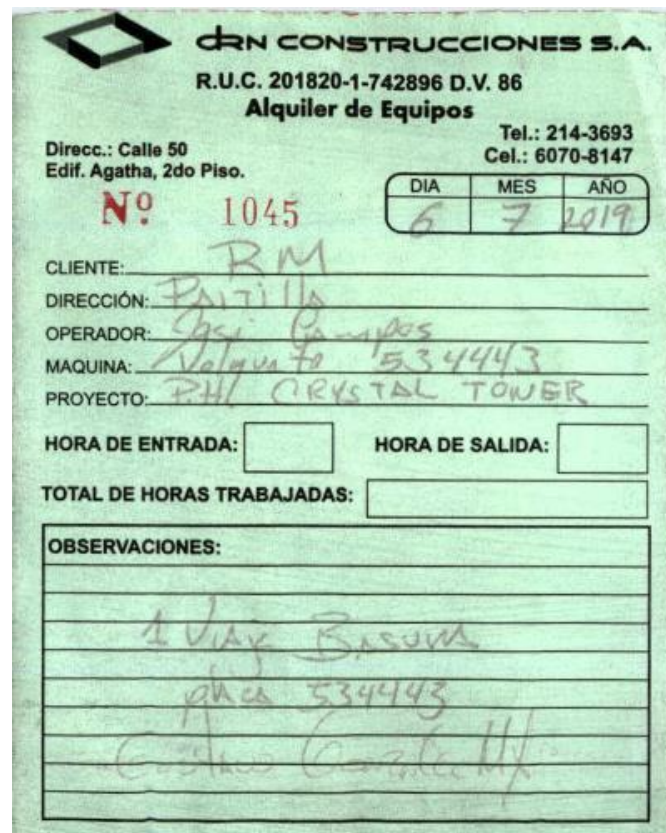 DRN CONSTRUCCIONES S.A.
R.U.C. 201820-1-742896 D.V. 86
Alquiler de Equipos
Tel.: 214-3693
Direcc.: Calle 50
Cel.: 6070-8147
Edif. Agatha, 2do Piso.
Nº 1045
DIA MES AÑO
6 7 2019
CLIENTE: RM
DIRECCIÓN: PAITILLA
OPERADOR: José Campos
MAQUINA: Volquete 534443
PROYECTO: P.H. CRYSTAL TOWER
HORA DE ENTRADA: HORA DE SALIDA:
TOTAL DE HORAS TRABAJADAS:
OBSERVACIONES:
1 Viaje BASURA
placa 534443
Gustavo